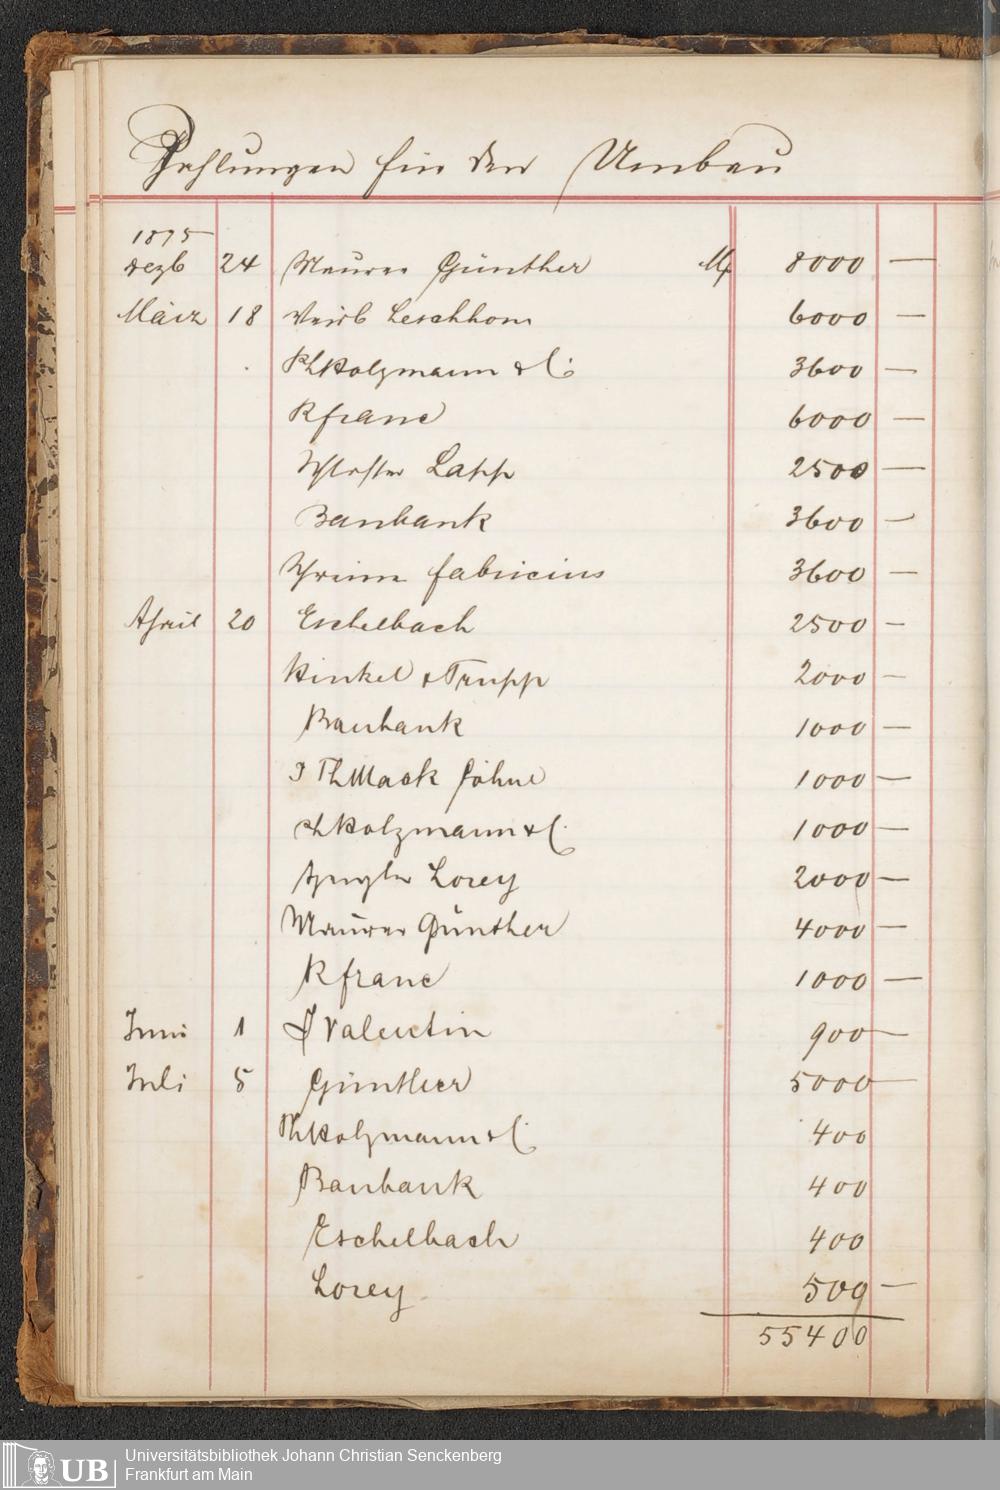 Zahlungen für den Umbau
1875
Dezb 24 Maurer Günther M 8000 —
März 18 Leschhorn 6000 —
Ph Holzmann & C. 3600 —
R franc 6000 —
Schlosser Lapp 2500 —
Baubank 3600 —
Schreiner Fabricius 3600 —
April 20 Eschelbach 2500 —
Hinkel & Trupp 2000 —
Baubank 1000 —
J Th Mack Söhne 1000 —
Ph Holzmann & C. 1000 —
Spengler Lorey 2000 —
Maurer Günther 4000 —
R franc 1000 —
Juni 1 Valentin 900 —
Juli 5 Günther 5000 —
Ph Holzmann & C. 400
Baubank 400
Eschelbach 400
Lorey 500 —
55400
Universitätsbibliothek Johann Christian Senckenberg
UB Frankfurt am Main